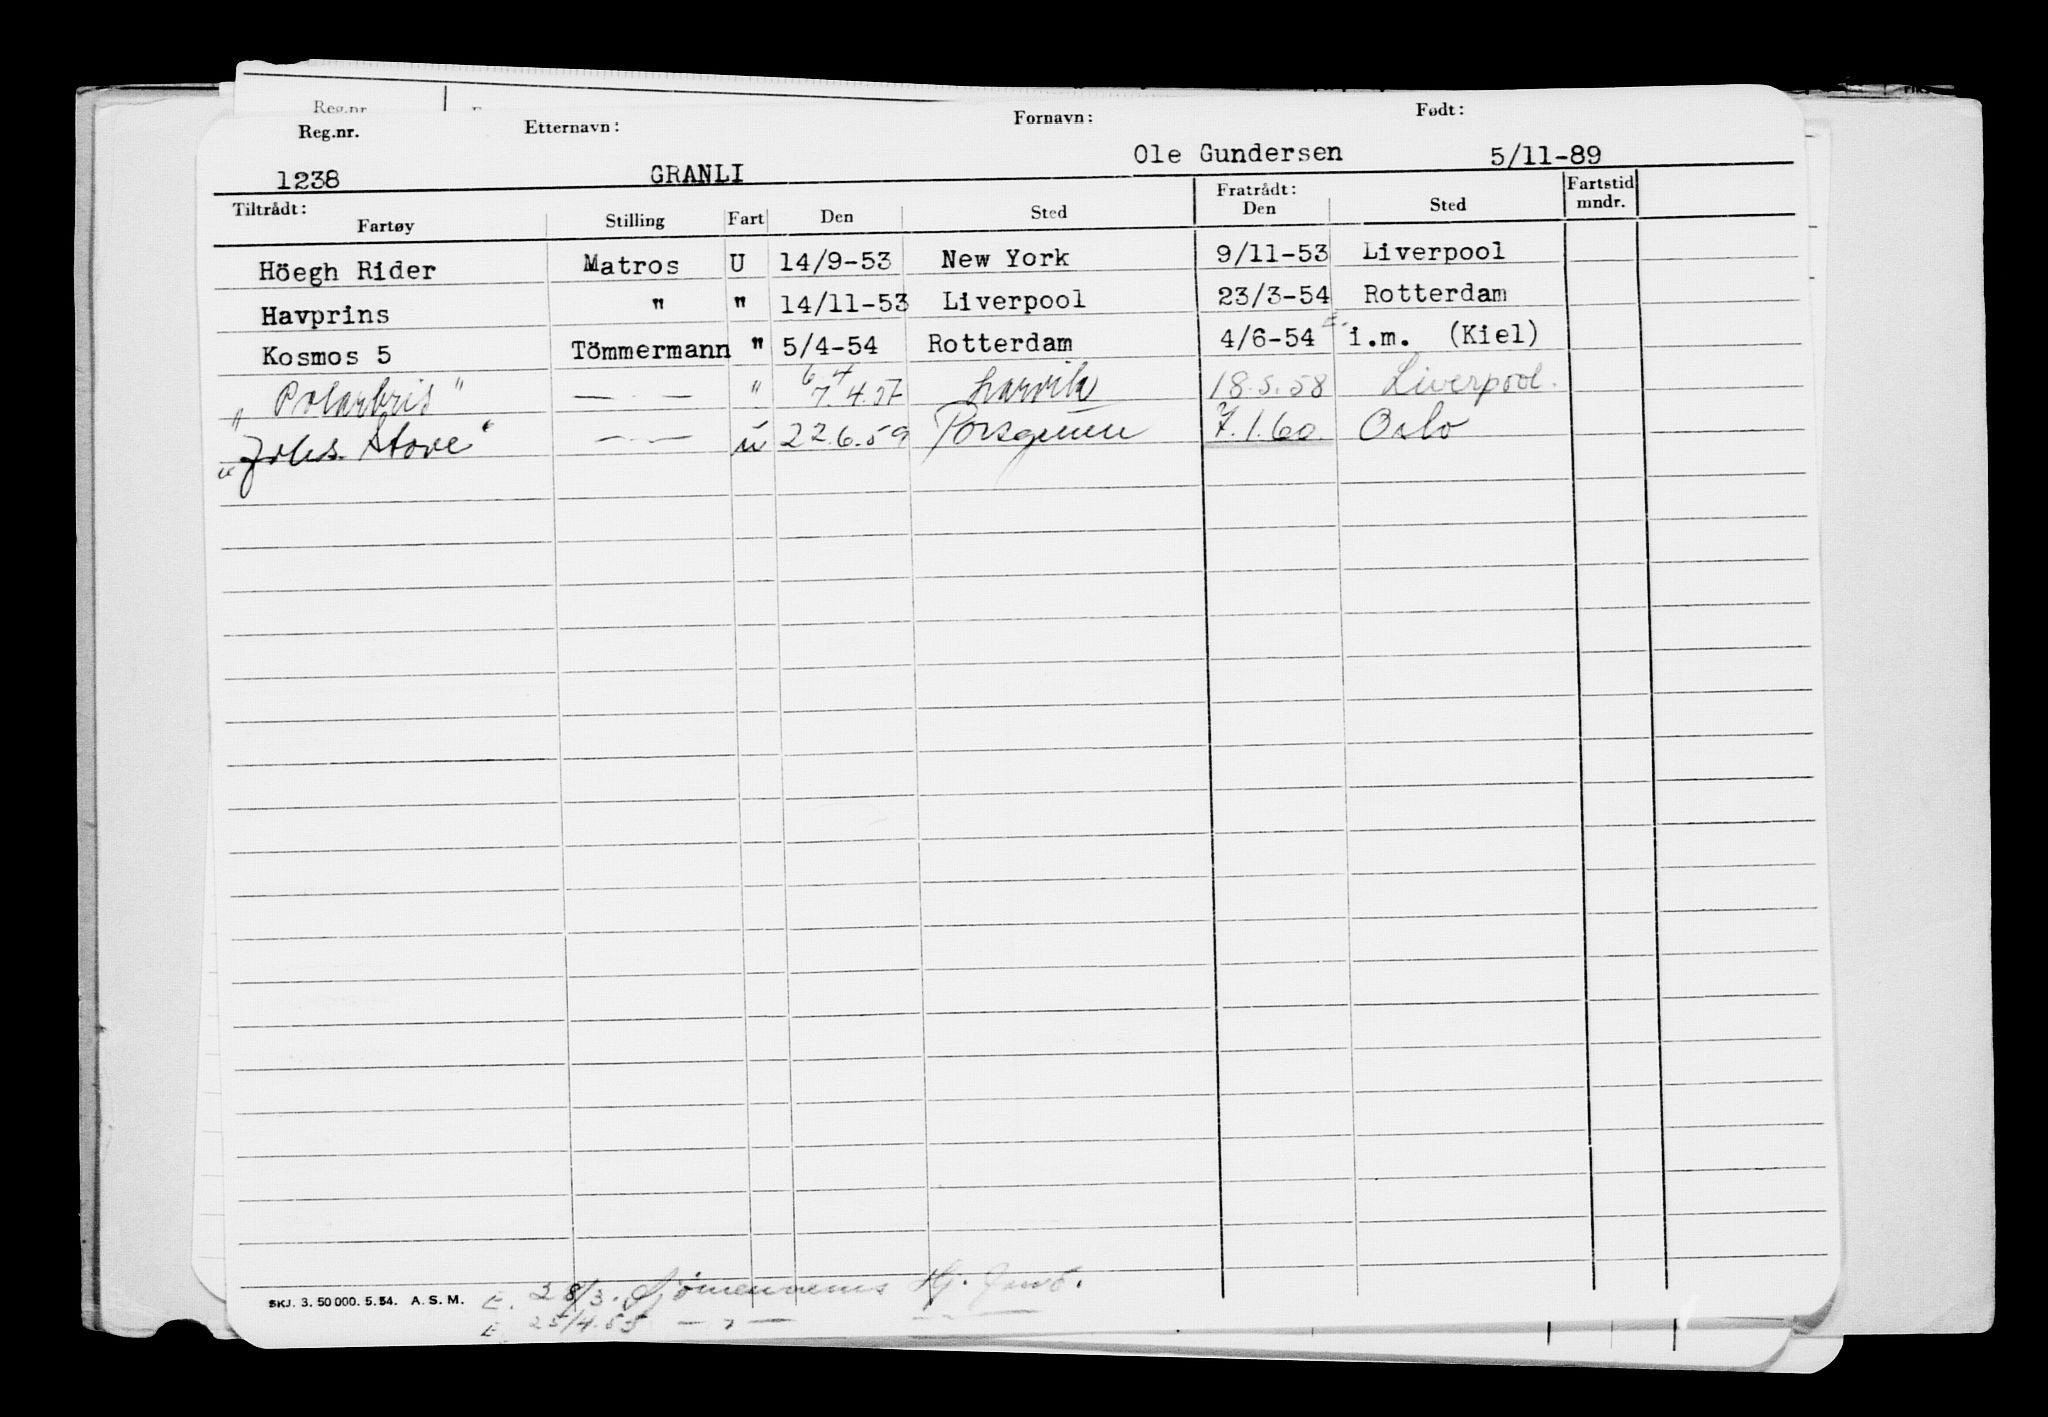 Reg.nr.
Reg.nr. Etternavn: Fornavn: Født:
1238 GRANLI Ole Gundersen 5/11-89
Tiltrådt: Fratrådt: Fartstid
Fartøy Stilling Fart Den Sted Den Sted mndr.
Höegh Rider Matros U 14/9-53 New York 9/11-53 Liverpool
Havprins " " 14/11-53 Liverpool 23/3-54 Rotterdam
Kosmos 5 Tömmermann " 5/4-54 Rotterdam 4/6-54 i.m. (Kiel)
6 4
"Polarbris" —"— " 7.4.57 Larvik 18.5.58 Liverpool.
"Johs. Stove" —"— u 22.6.59 Porsgrunn 7.1.60. Oslo
SKJ. 3. 50 000. 5. 54. A. S. M. E. 28/3. Sjømennenes Hj.
E. 25/4.55 — " —